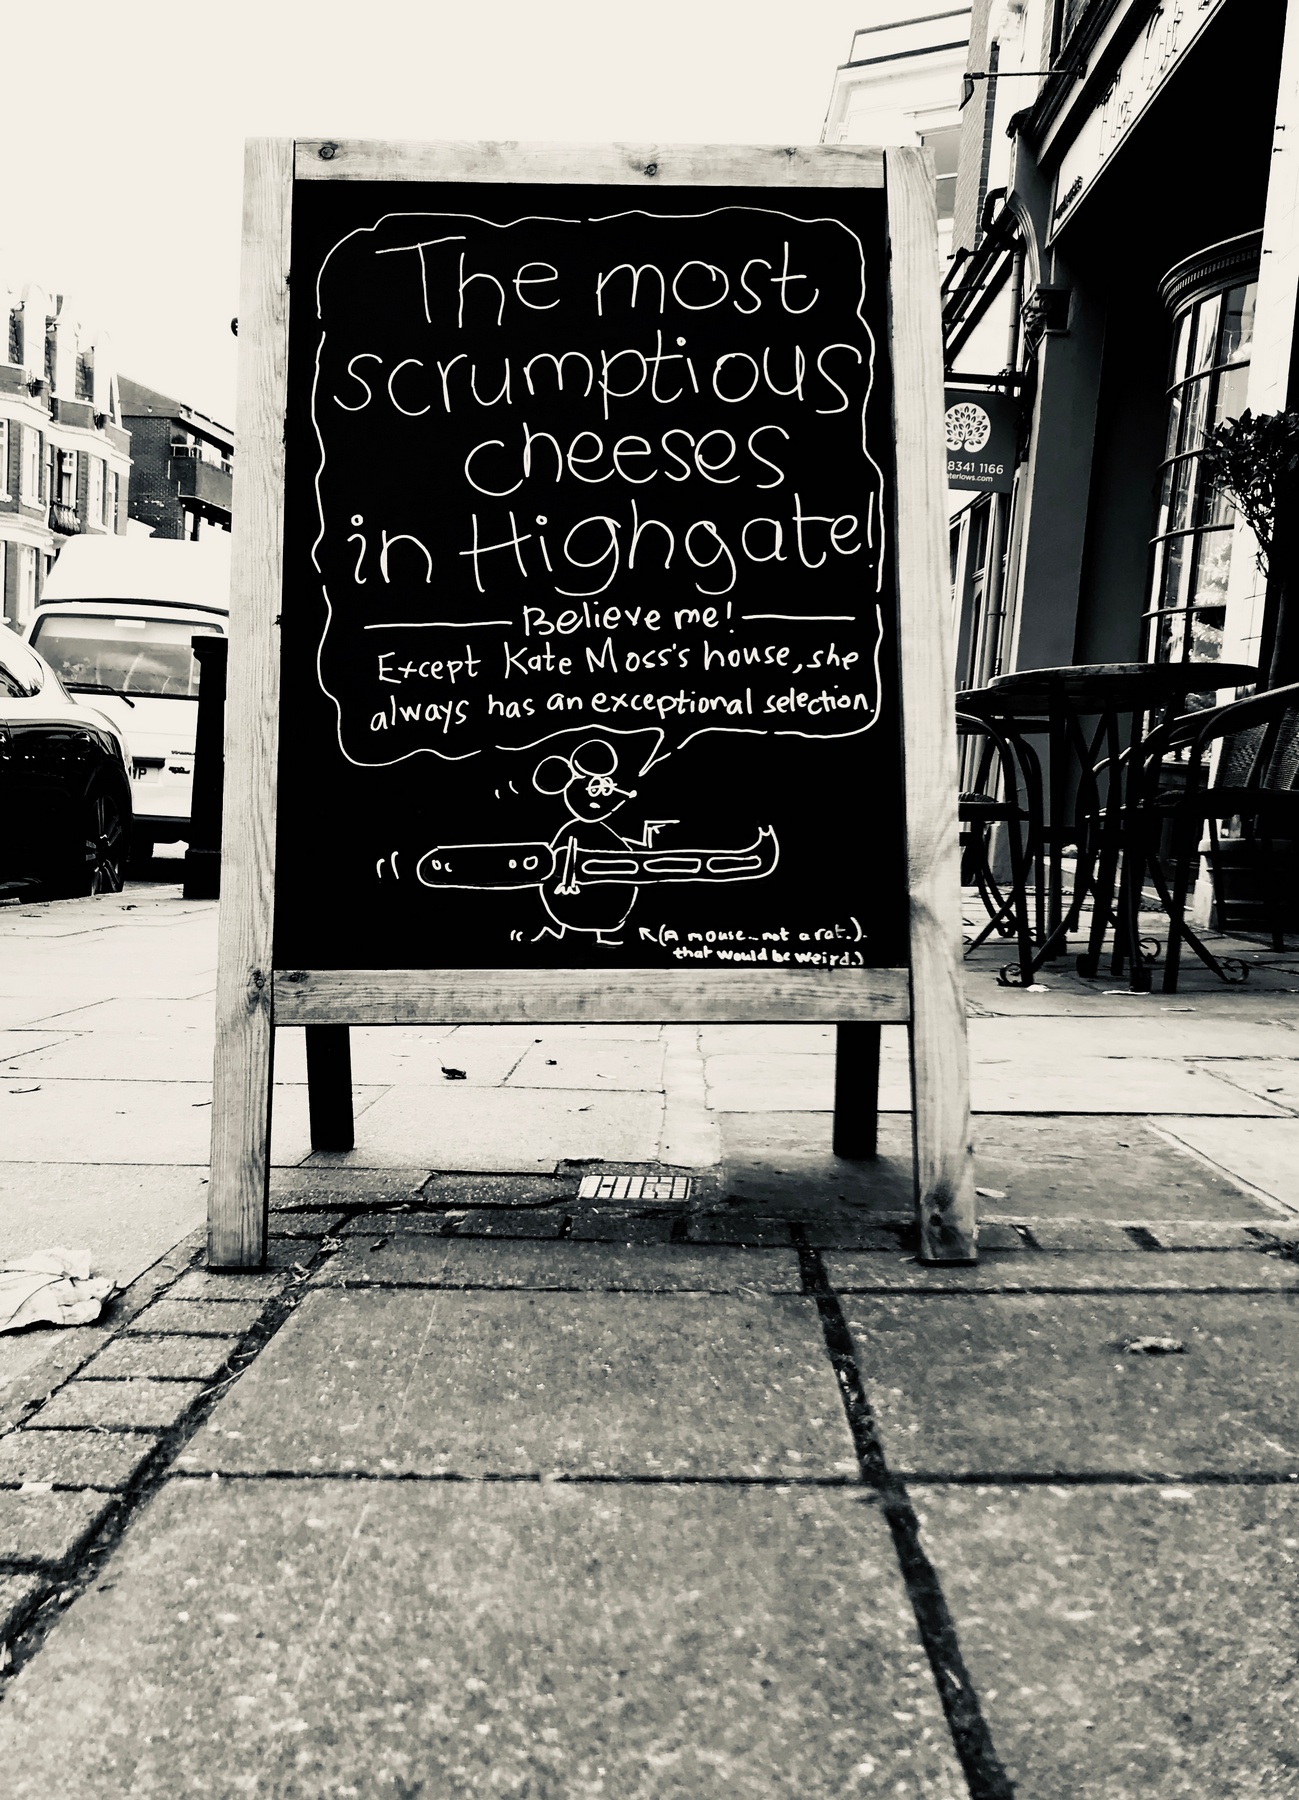 The most
scrumptious
cheeses
in Highgate!
Believe me!
Except Kate Moss's house, she
always has an exceptional selection.
(A mouse... not a rat.).
that would be weird.)
8341 1166
terlows.com